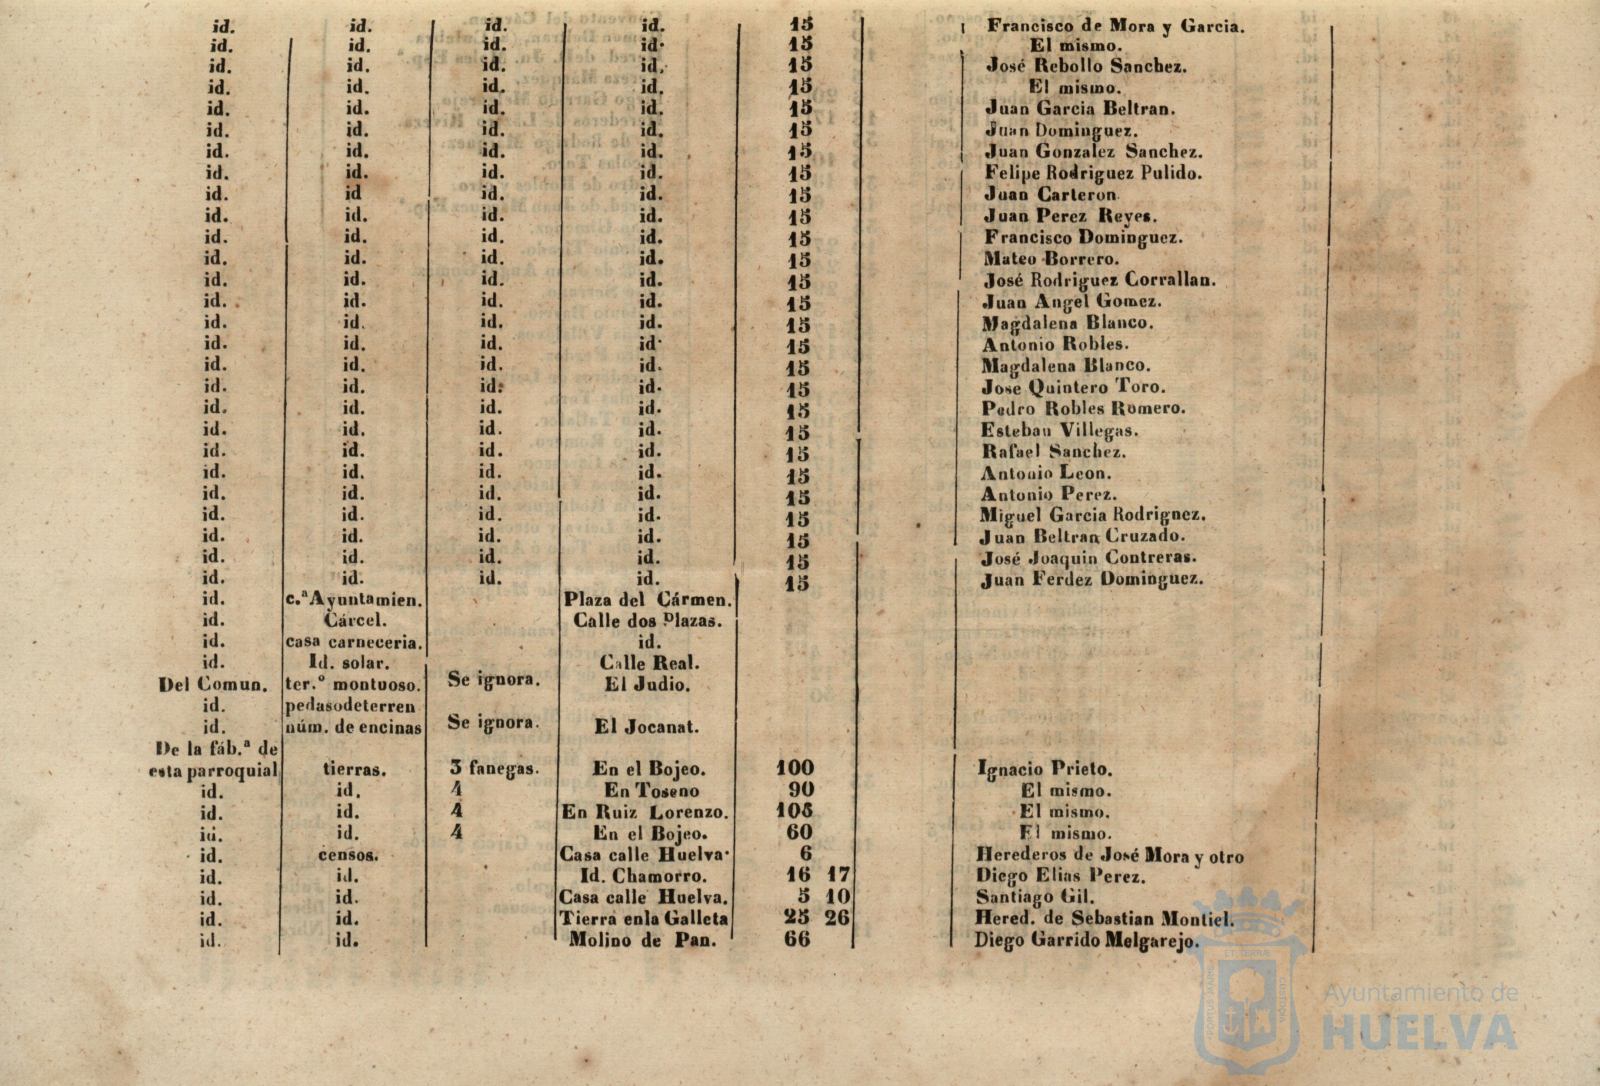 id. id. id. id. 15 Francisco de Mora y Garcia.
id. id. id. id. 15 El mismo.
id. id. id. id. 15 José Rebollo Sanchez.
id. id. id. id. 15 El mismo.
id. id. id. id. 15 Juan Garcia Beltran.
id. id. id. id. 15 Juan Dominguez.
id. id. id. id. 15 Juan Gonzalez Sanchez.
id. id. id. id. 15 Felipe Rodriguez Pulido.
id. id id. id. 15 Juan Carteron
id. id. id. id. 15 Juan Perez Reyes.
id. id. id. id. 15 Francisco Dominguez.
id. id. id. id. 15 Mateo Borrero.
id. id. id. id. 15 José Rodriguez Corrallan.
id. id. id. id. 15 Juan Angel Gomez.
id. id. id. id. 15 Magdalena Blanco.
id. id. id. id. 15 Antonio Robles.
id. id. id. id. 15 Magdalena Blanco.
id. id. id. id. 15 Jose Quintero Toro.
id. id. id. id. 15 Pedro Robles Romero.
id. id. id. id. 15 Esteban Villegas.
id. id. id. id. 15 Rafael Sanchez.
id. id. id. id. 15 Antonio Leon.
id. id. id. id. 15 Antonio Perez.
id. id. id. id. 15 Miguel Garcia Rodrignez.
id. id. id. id. 15 Juan Beltran Cruzado.
id. id. id. id. 15 José Joaquin Contreras.
id. id. id. id. 15 Juan Ferdez Dominguez.
id. c.ª Ayuntamien. Plaza del Cármen.
id. Cárcel. Calle dos Plazas.
id. casa carneceria. id.
id. Id. solar. Calle Real.
Del Comun. ter.º montuoso. Se ignora. El Judio.
id. pedasodeterren
id. núm. de encinas Se ignora. El Jocanat.
De la fáb.ª de
esta parroquial tierras. 3 fanegas. En el Bojeo. 100 Ignacio Prieto.
id. id. 4 En Toseno 90 El mismo.
id. id. 4 En Ruiz Lorenzo. 105 El mismo.
id. id. 4 En el Bojeo. 60 El mismo.
id. censos. Casa calle Huelva. 6 Herederos de José Mora y otro
id. id. Id. Chamorro. 16 17 Diego Elias Perez.
id. id. Casa calle Huelva. 5 10 Santiago Gil.
id. id. Tierra enla Galleta 25 26 Hered. de Sebastian Montiel.
id. id. Molino de Pan. 66 Diego Garrido Melgarejo.
Ayuntamiento de
HUELVA